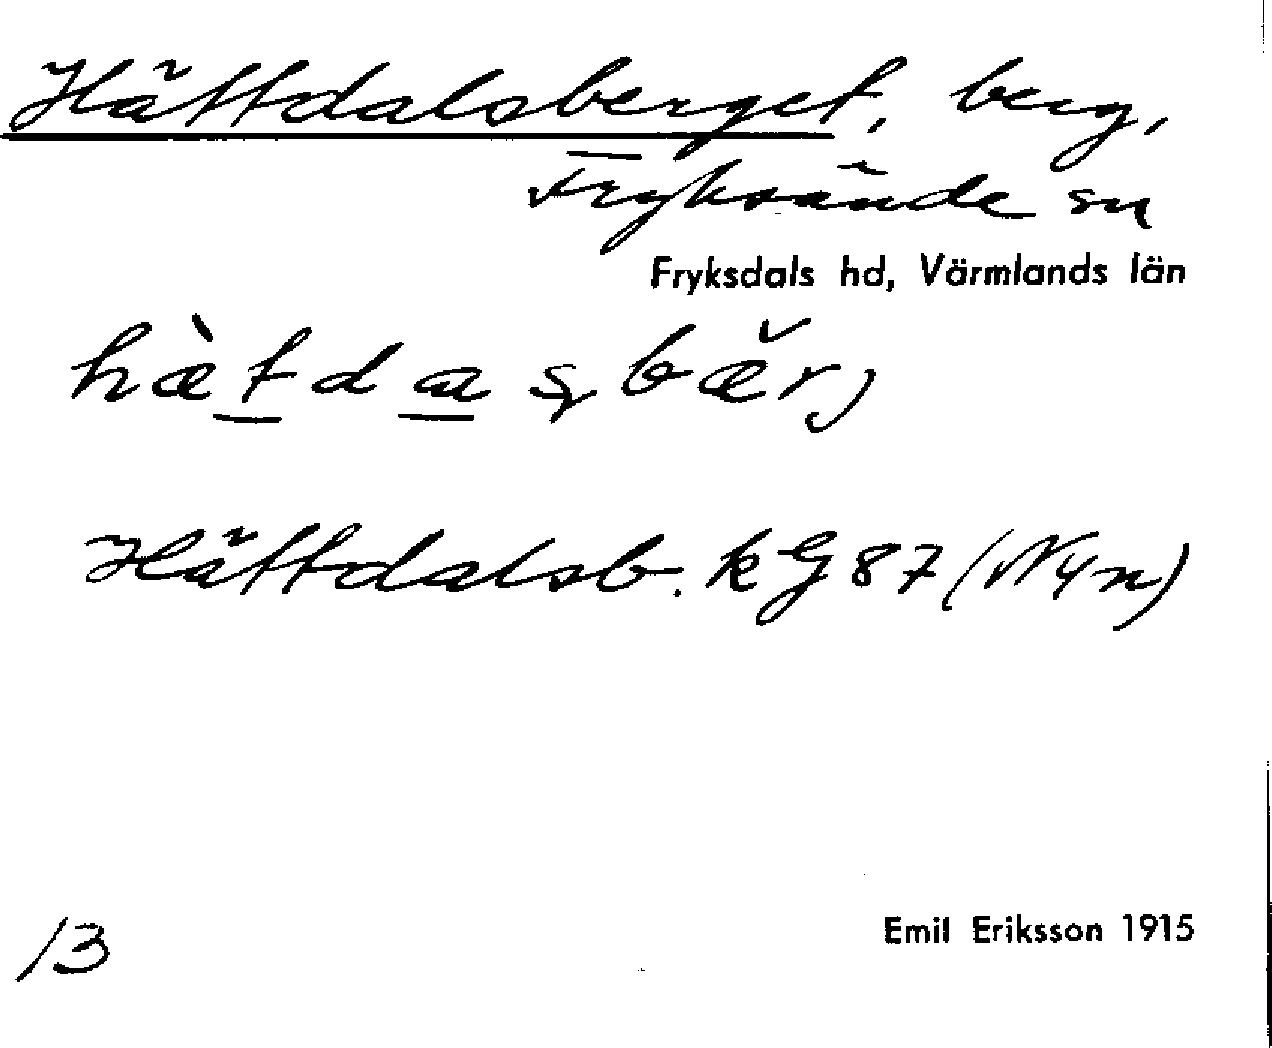 Hättdalsberget, berg,
Fryksände sn
Fryksdals hd, Värmlands län
hæ̀tdaʂbæ̌rj
Hättdalsb. kG 87 (Nyn)
13
Emil Eriksson 1915